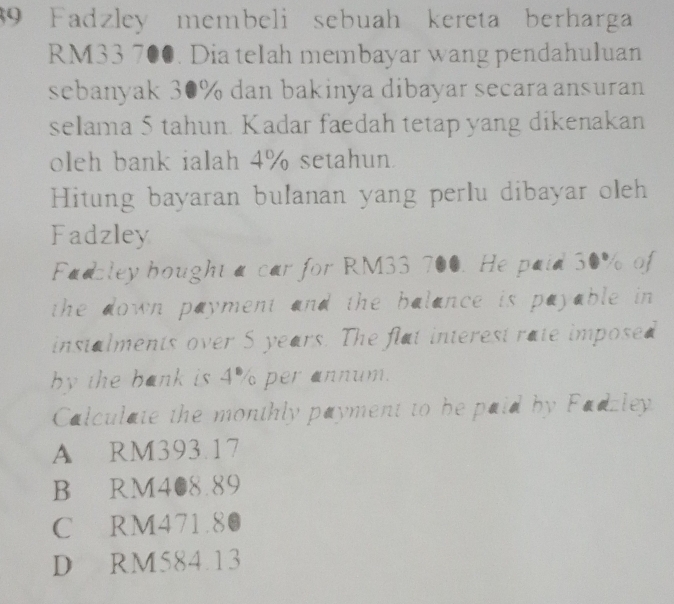 39 Fadzley membeli sebuah kereta berharga
RM33 700. Dia telah membayar wang pendahuluan
sebanyak 30% dan bakinya dibayar secara ansuran
selama 5 tahun. Kadar faedah tetap yang dikenakan
oleh bank ialah 4% setahun.
Hitung bayaran bulanan yang perlu dibayar oleh
Fadzley.
Fadzley bought a car for RM33 700. He paid 30% of
the down payment and the balance is payable in
instalments over 5 years. The flat interest rate imposed
by the bank is 4% per annum.
Calculate the monthly payment to be paid by Fadzley.
A RM393.17
B RM408.89
C RM471.80
D RM584.13